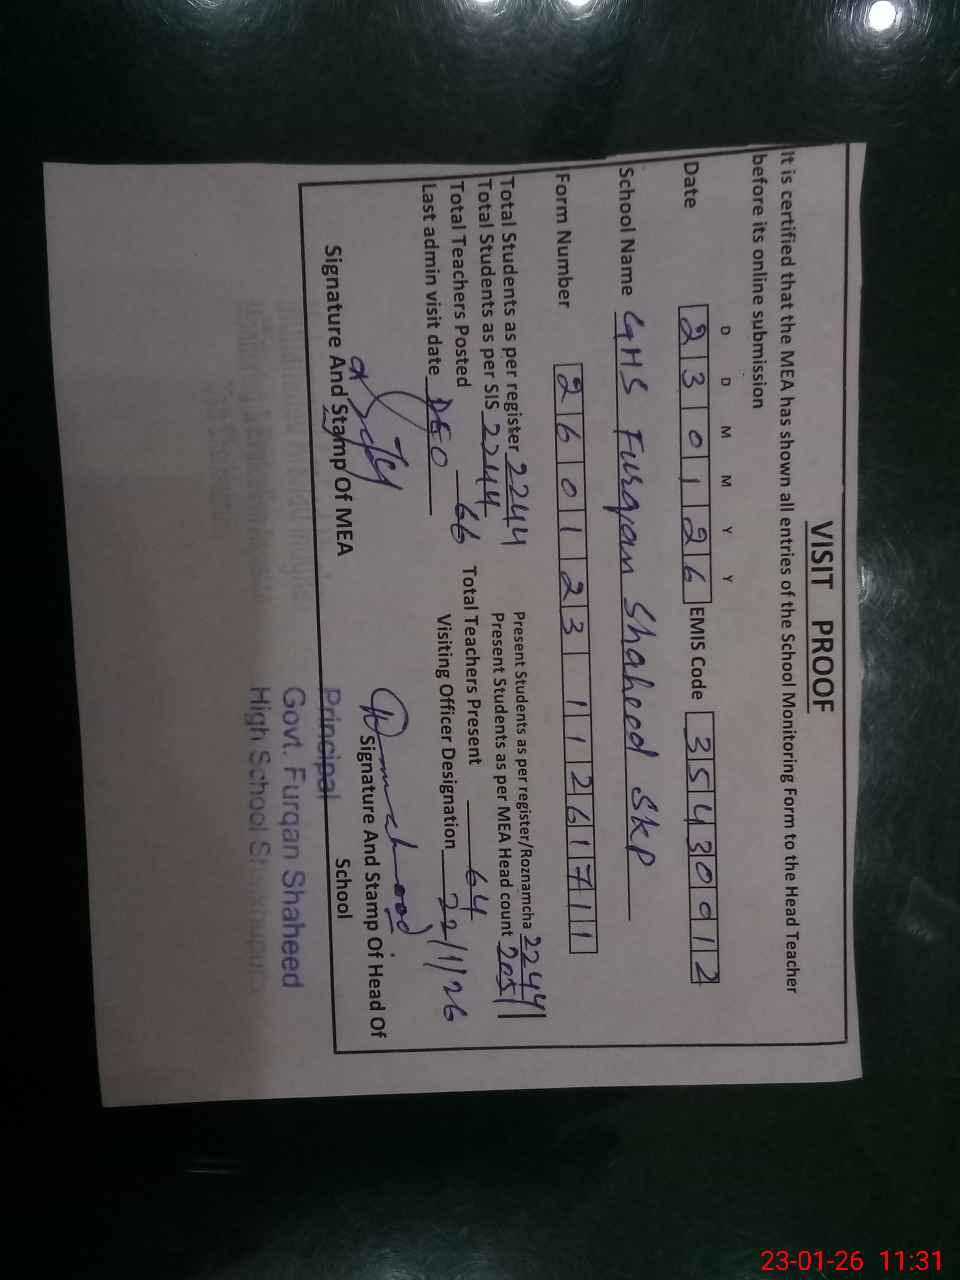 VISIT PROOF
It is certified that the MEA has shown all entries of the School Monitoring Form to the Head Teacher
before its online submission
D D M M Y Y
Date 2 3 0 1 2 6 EMIS Code 3 5 4 3 0 0 1 2
School Name GHS Furqan Shaheed SKP
Form Number 2 6 0 1 2 3 1 1 2 6 1 7 1 1
Total Students as per register 2244 Present Students as per register/Roznamcha 2244
Total Students as per SIS 2244 Present Students as per MEA Head count 2051
Total Teachers Posted 66 Total Teachers Present 64
Last admin visit date DEO Visiting Officer Designation 22/1/26
Signature And Stamp Of MEA
Signature And Stamp Of Head Of
School
Principal
Govt. Furqan Shaheed
High School Sheikhupura
23-01-26 11:31